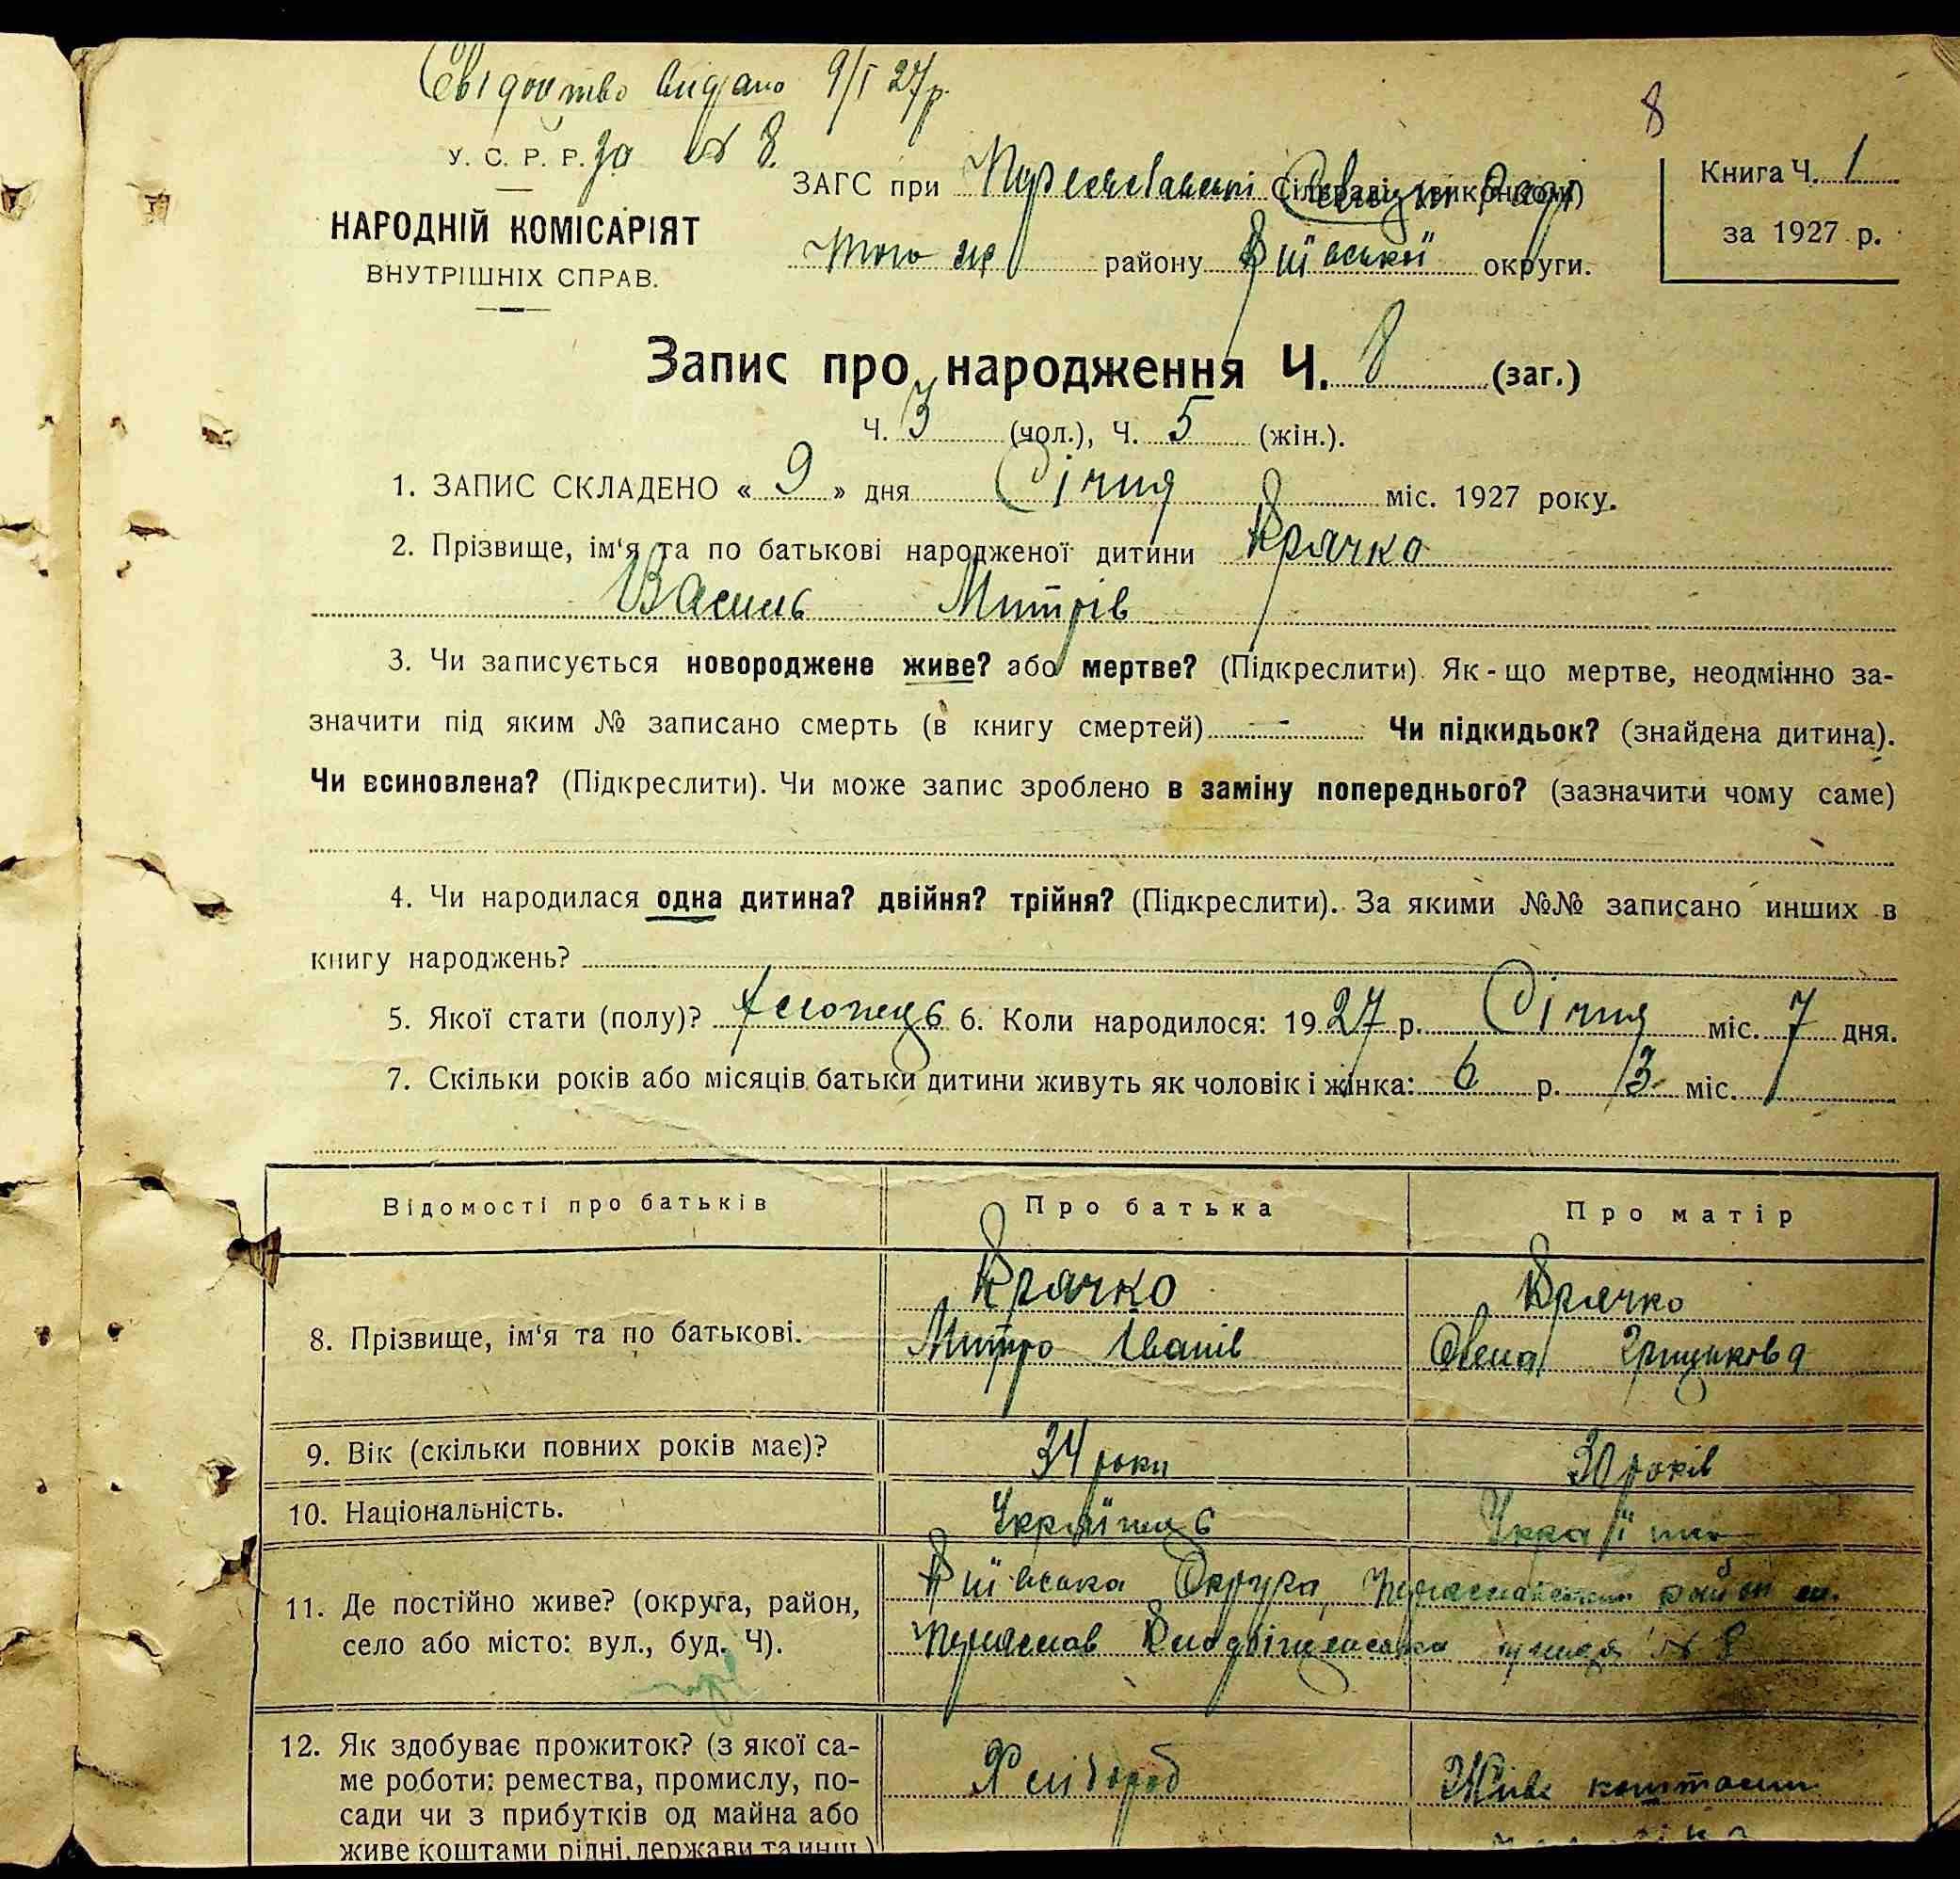 Свідоцтво видано 9/I 27р.
У. С. Р. Р. за № 8.
8
ЗАГС при Переяславській Сільраді (виконкомі) Міській Раді
Книга Ч. 1
НАРОДНІЙ КОМІСАРІЯТ
того ж району Київської округи.
за 1927 р.
ВНУТРІШНІХ СПРАВ.
Запис про народження Ч. 8 (заг.)
Ч. 3 (чол.), Ч. 5 (жін.).
1. ЗАПИС СКЛАДЕНО « 9 » дня Січня міс. 1927 року.
2. Прізвище, ім'я та по батькові народженої дитини Крячко
Василь Митрів
3. Чи записується новороджене живе? або мертве? (Підкреслити). Як-що мертве, неодмінно за-
значити під яким № записано смерть (в книгу смертей) - Чи підкидьок? (знайдена дитина).
Чи всиновлена? (Підкреслити). Чи може запис зроблено в заміну попереднього? (зазначити чому саме)
4. Чи народилася одна дитина? двійня? трійня? (Підкреслити). За якими №№ записано инших в
книгу народжень?
5. Якої стати (полу)? хлопець 6. Коли народилося: 1927 р. Січня міс. 7 дня.
7. Скільки років або місяців батьки дитини живуть як чоловік і жінка: 6 р. 3 міс.
Відомості про батьків Про батька Про матір
8. Прізвище, ім'я та по батькові.
Крячко
Митро Іванів
Крячко
Олена Грицькова
9. Вік (скільки повних років має)? 34 роки 30 років
10. Національність. Українець Українка
11. Де постійно живе? (округа, район,
село або місто: вул., буд. Ч).
Київська Округа, Переяславський район м.
Переяслав вулиця № 8
12. Як здобуває прожиток? (з якої са-
ме роботи: ремества, промислу, по-
сади чи з прибутків од майна або
живе коштами рідні, держави та инш.)
Хлібороб
Живе коштами